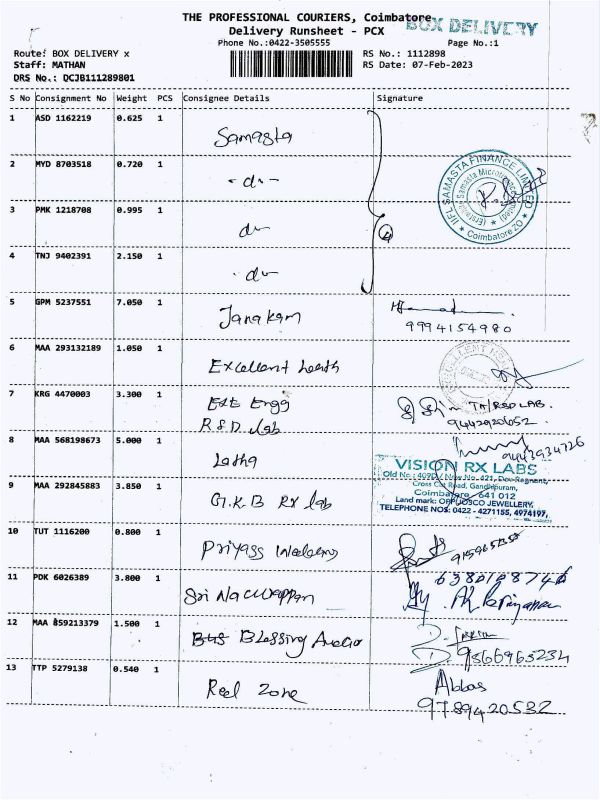 THE PROFESSIONAL COURIERS, Coimbatore
BOX DELIVERY
Delivery Runsheet - PCX
Phone No.:0422-3505555
Page No.:1
Route: BOX DELIVERY x
RS No.: 1112898
Staff: MATHAN
RS Date: 07-Feb-2023
DRS No.: DCJB111289801
S No Consignment No Weight PCS Consignee Details Signature
1 ASD 1162219 0.625 1
Samasta
2 MYD 8703518 0.720 1
- do -
IIFL SAMASTA FINANCE LIMITED
Coimbatore ZO
3 PMK 1218708 0.995 1
do
4
4 TNJ 9402391 2.150 1
- do
5 GPM 5237551 7.050 1
Janakam
9994154980
6 MAA 293132189 1.050 1
Excellent
7 KRG 4470003 3.300 1
Engg
R&D lab
TA/R&D LAB.
9442920652
8 MAA 568198673 5.000 1
Latha
9443934726
VISION RX LABS
Cross Cut Road, Gandhipuram,
Coimbatore - 641 012
Land mark: OPP JOSCO JEWELLERY,
TELEPHONE NOS: 0422 - 4271155, 4974197,
9 MAA 292845883 3.850 1
G.K.B Rx lab
10 TUT 1116200 0.800 1
Priyass
11 PDK 6026389 3.800 1
Sri
12 MAA 859213379 1.500 1
Blessing
9566965234
13 TTP 5279138 0.540 1
Reel Zone
Abbas
9789420532